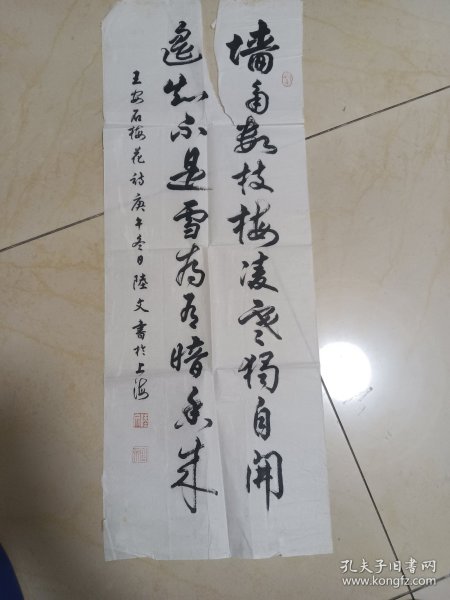 墙角数枝梅凌寒独自開
遥知不是雪为有暗香来
王安石梅花诗庚午冬日陸文書於上海
孔夫子旧书网
www.kongfz.com